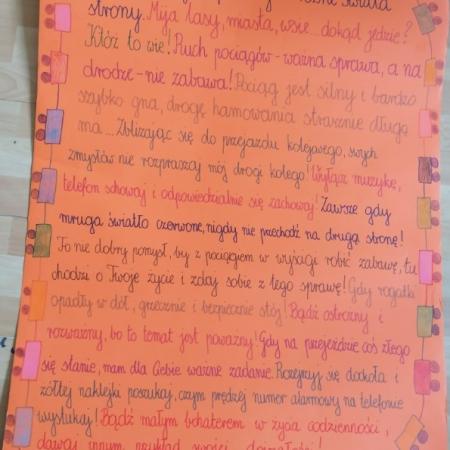 świata
strony. Mija lasy, miasta, wsie... dokąd jedzie?
Któż to wie! Ruch pociągów - ważna sprawa, a na
drodze - nie zabawa! Pociąg jest silny i bardzo
szybko gna, drogę hamowania strasznie długą
ma... Zbliżając się do przejazdu kolejowego, swych
zmysłów nie rozpraszaj mój drogi kolego! Wyłącz muzykę,
telefon schowaj i odpowiedzialnie się zachowaj! Zawsze gdy
mruga światło czerwone, nigdy nie przechodź na drugą stronę!
To nie dobry pomysł, by z pociągiem w wyścigi robić zabawę, tu
chodzi o Twoje życie i zdaj sobie z tego sprawę! Gdy rogatki
opadły w dół, grzecznie i bezpiecznie stój! Bądź ostrożny i
rozważny, bo to temat jest poważny! Gdy na przejeździe coś złego
się stanie, mam dla Ciebie ważne zadanie. Rozejrzyj się dookoła i
żółtej naklejki poszukaj, czym prędzej numer alarmowy na telefonie
wystukaj! Bądź małym bohaterem w życia codzienności,
dawaj innym przykład swojej